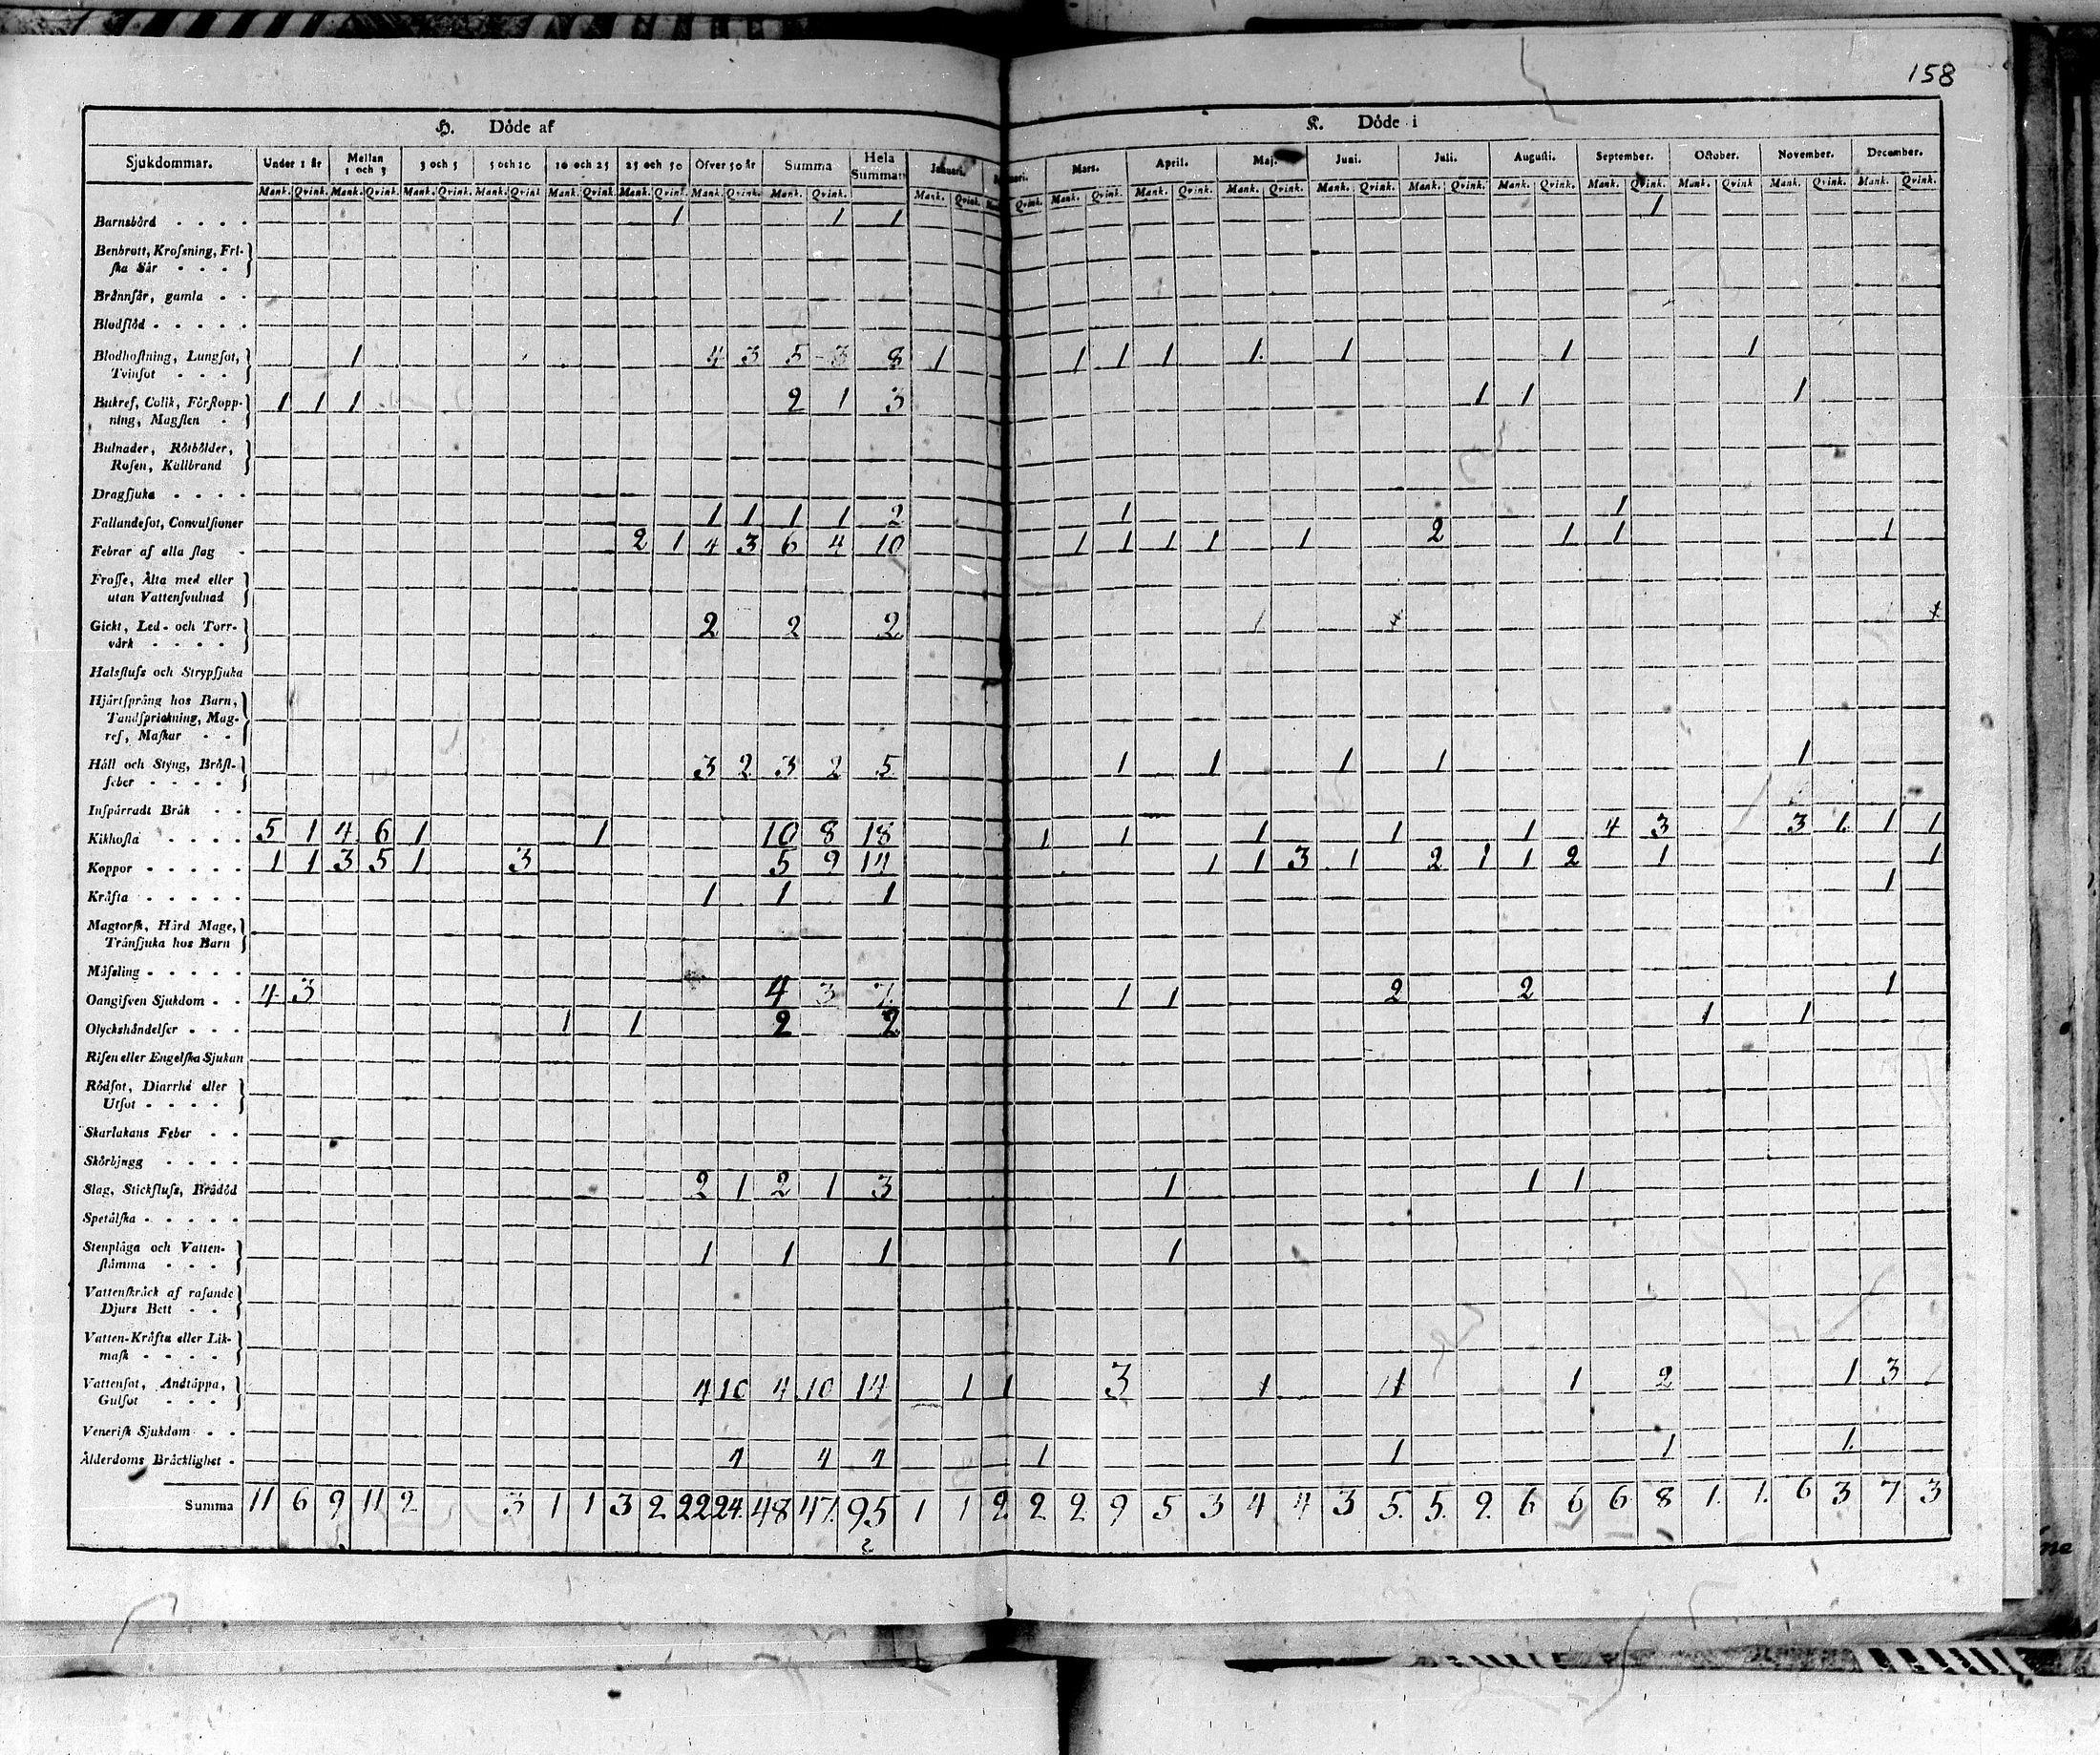 158
H. Döde af K. Döde i
Sjukdommar. Under 1 år Mellan 1 och 3 3 och 5 5 och 10 10 och 25 25 och 50 Öfver 50 år Summa Hela Summan Januari. Mars. April. Maj. Juni. Juli. Augusti. September. October. November. December.
Mank. Qvink. Mank. Qvink. Mank. Qvink. Mank. Qvink Mank. Qvink. Mank. Qvink. Mank. Qvink. Mank. Qvink. Mank. Qvink. Qvink. Mank. Qvink. Mank. Qvink. Mank. Qvink. Mank. Qvink. Mank. Qvink. Mank. Qvink. Mank. Qvink. Mank. Qvink Mank. Qvink. Mank. Qvink.
Barnsbörd 1 1 1 1
Benbrott, Kroſsning, Fri-
ſka Sår
Brånnſår, gamla
Blodflöd
Blodhoſtning, Lungſot, Tvinſot 1 4 3 5 3 8 1 1 1 1 1 1 1 1
Bukref, Colik, Förſtopp-
ning, Magſten 1 1 1 2 1 3 1 1 1
Bulnader, Rötbölder,
Roſen, Kallbrand
Dragſjuka
Fallandeſot, Convulſioner 1 1 1 1 2 1 1
Febrar af alla ſlag 2 1 4 3 6 4 10 1 1 1 1 1 2 1 1 1
Froſſe, Älta med eller
utan Vattenſvulnad
Gickt, Led- och Torr-
värk 2 2 2 1
Halsfluſs och Strypſjuka
Hjärtſprång hos Barn,
Tandſprickning, Mag-
ref, Maſkar
Håll och Styng, Bröſt-
feber 3 2 3 2 5 1 1 1 1 1
Inſpärradt Bråk
Kikhoſta 5 1 4 6 1 1 10 8 18 1 1 1 1 1 4 3 3 1 1 1
Koppor 1 1 3 5 1 3 5 9 14 1 1 3 1 2 1 1 2 1 1
Kräfta 1 1 1 1
Magtorſk, Hård Mage,
Tränſjuka hos Barn
Måſsling
Oangifven Sjukdom 4 3 4 3 7 1 1 2 2 1
Olyckshändelſer 1 1 2 2 1 1
Riſen eller Engelſka Sjukan
Rödſot, Diarrhé eller
Utſot
Skarlakans Feber
Skörbjugg
Slag, Stickfluſs, Brådöd 2 1 2 1 3 1 1 1
Spetälſka
Stenplåga och Vatten-
ſtämma 1 1 1 1
Vattenſkräck af raſande
Djurs Bett
Vatten-Kräfta eller Lik-
maſk
Vattenſot, Andtäppa,
Gulſot 4 10 4 10 14 1 1 3 1 1 1 2 1 3
Veneriſk Sjukdom
Ålderdoms Bräcklighet 4 4 4 1 1 1 1
Summa 11 6 9 11 2 3 1 1 3 2 22 24 48 47 95 1 1 2 2 2 9 5 3 4 4 3 5 5 2 6 6 6 8 1 1 6 3 7 3